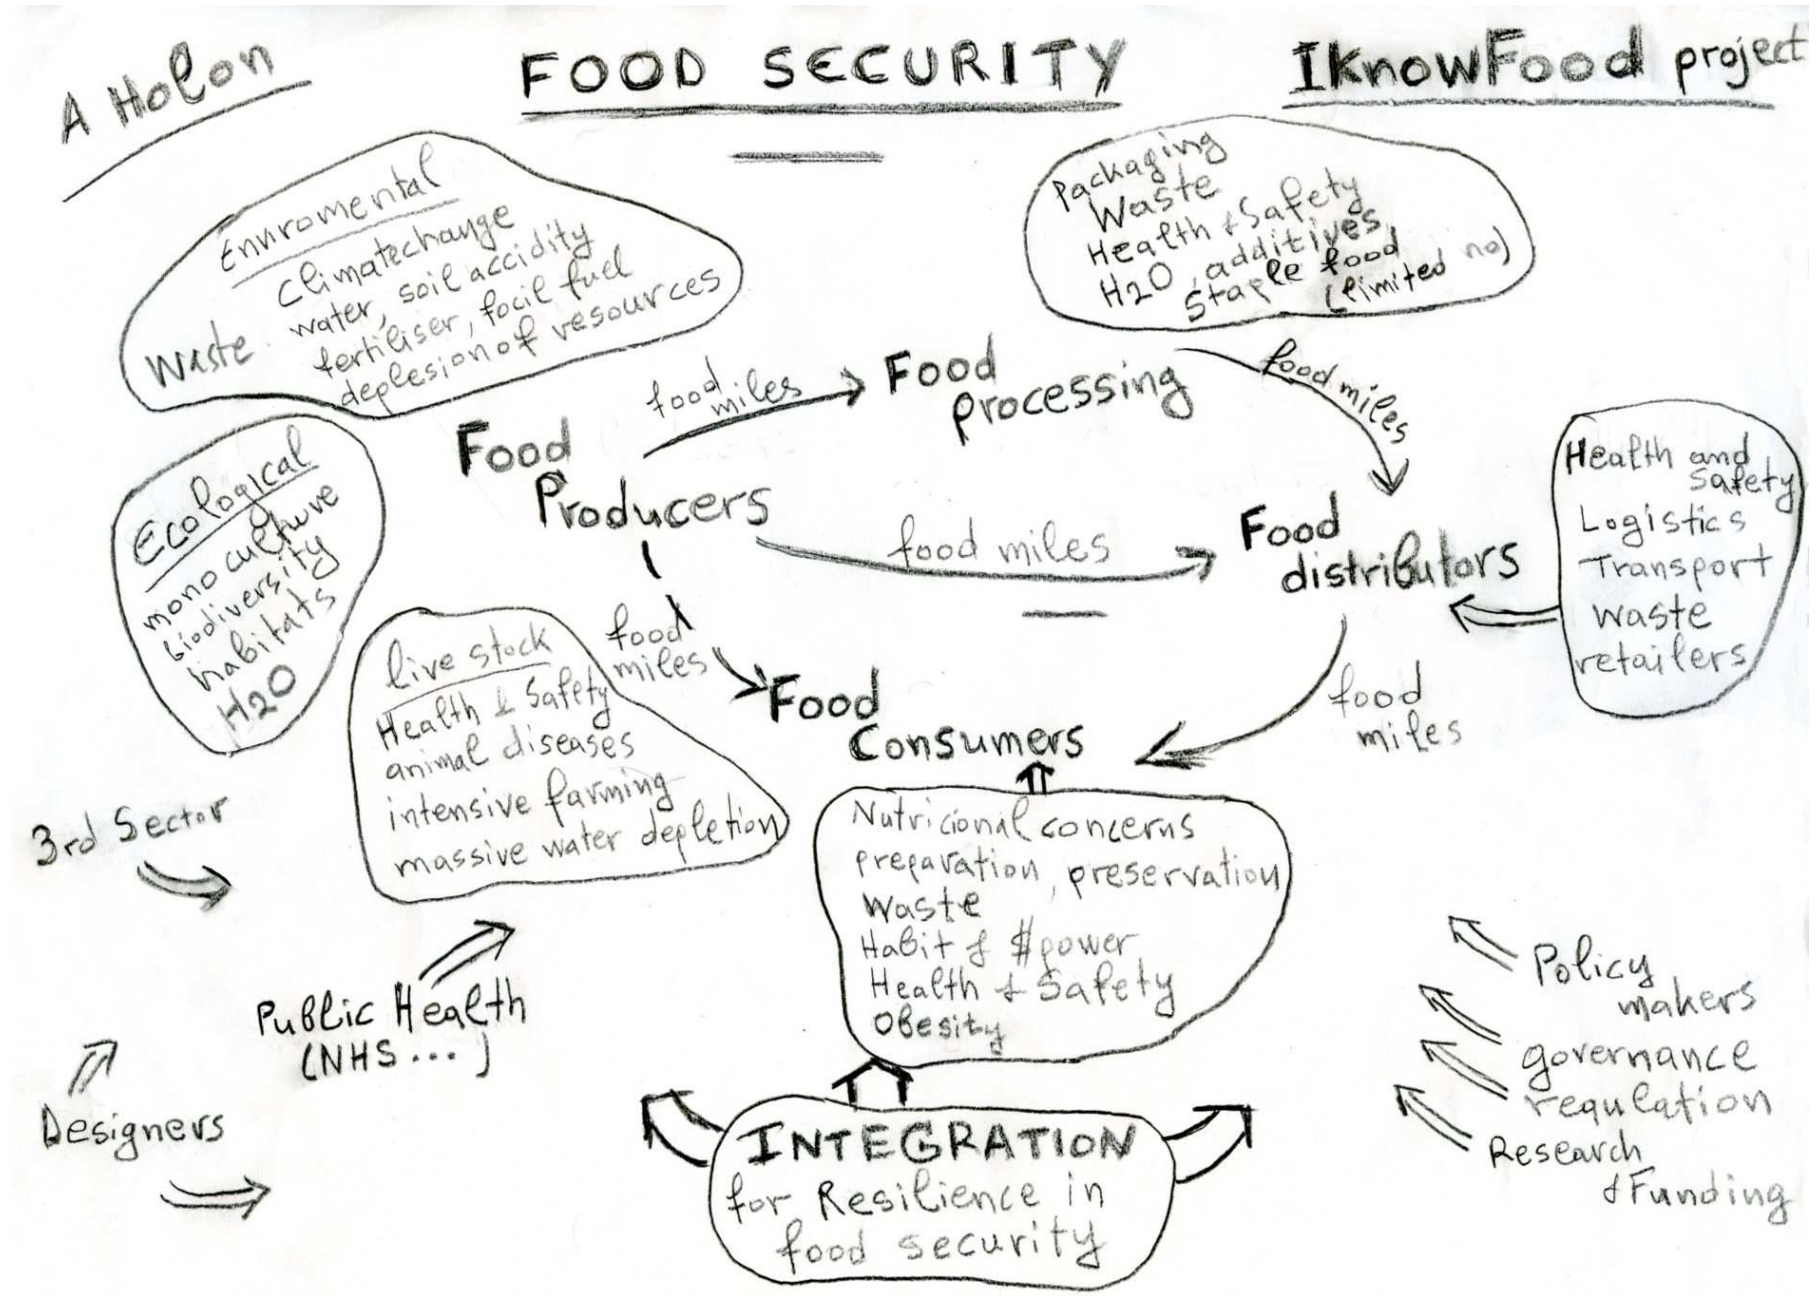 A Holon
FOOD SECURITY
IKnowFood project
Enviromental
Climatechange
water, soil accidity
Waste fertiliser, focil fuel
deplesion of resources
Packaging
Waste
Health & Safety
H2O, additives,
Staple food
(limited no)
food
miles
Food
processing
food miles
Food
Producers
Ecological
mono culture
biodiversity
habitats
H2O
food miles
Food
distributors
Health and
Safety
Logistics
Transport
Waste
retailers
live stock
Health & Safety
animal diseases
intensive farming
massive water depletion
food
miles
Food
Consumers
food
miles
Nutricional concerns
preparation, preservation
Waste
Habit & $power
Health & Safety
Obesity
3rd Sector
Public Health
(NHS...)
Designers
Policy
makers
governance
regulation
Research
& Funding
INTEGRATION
for Resilience in
food security